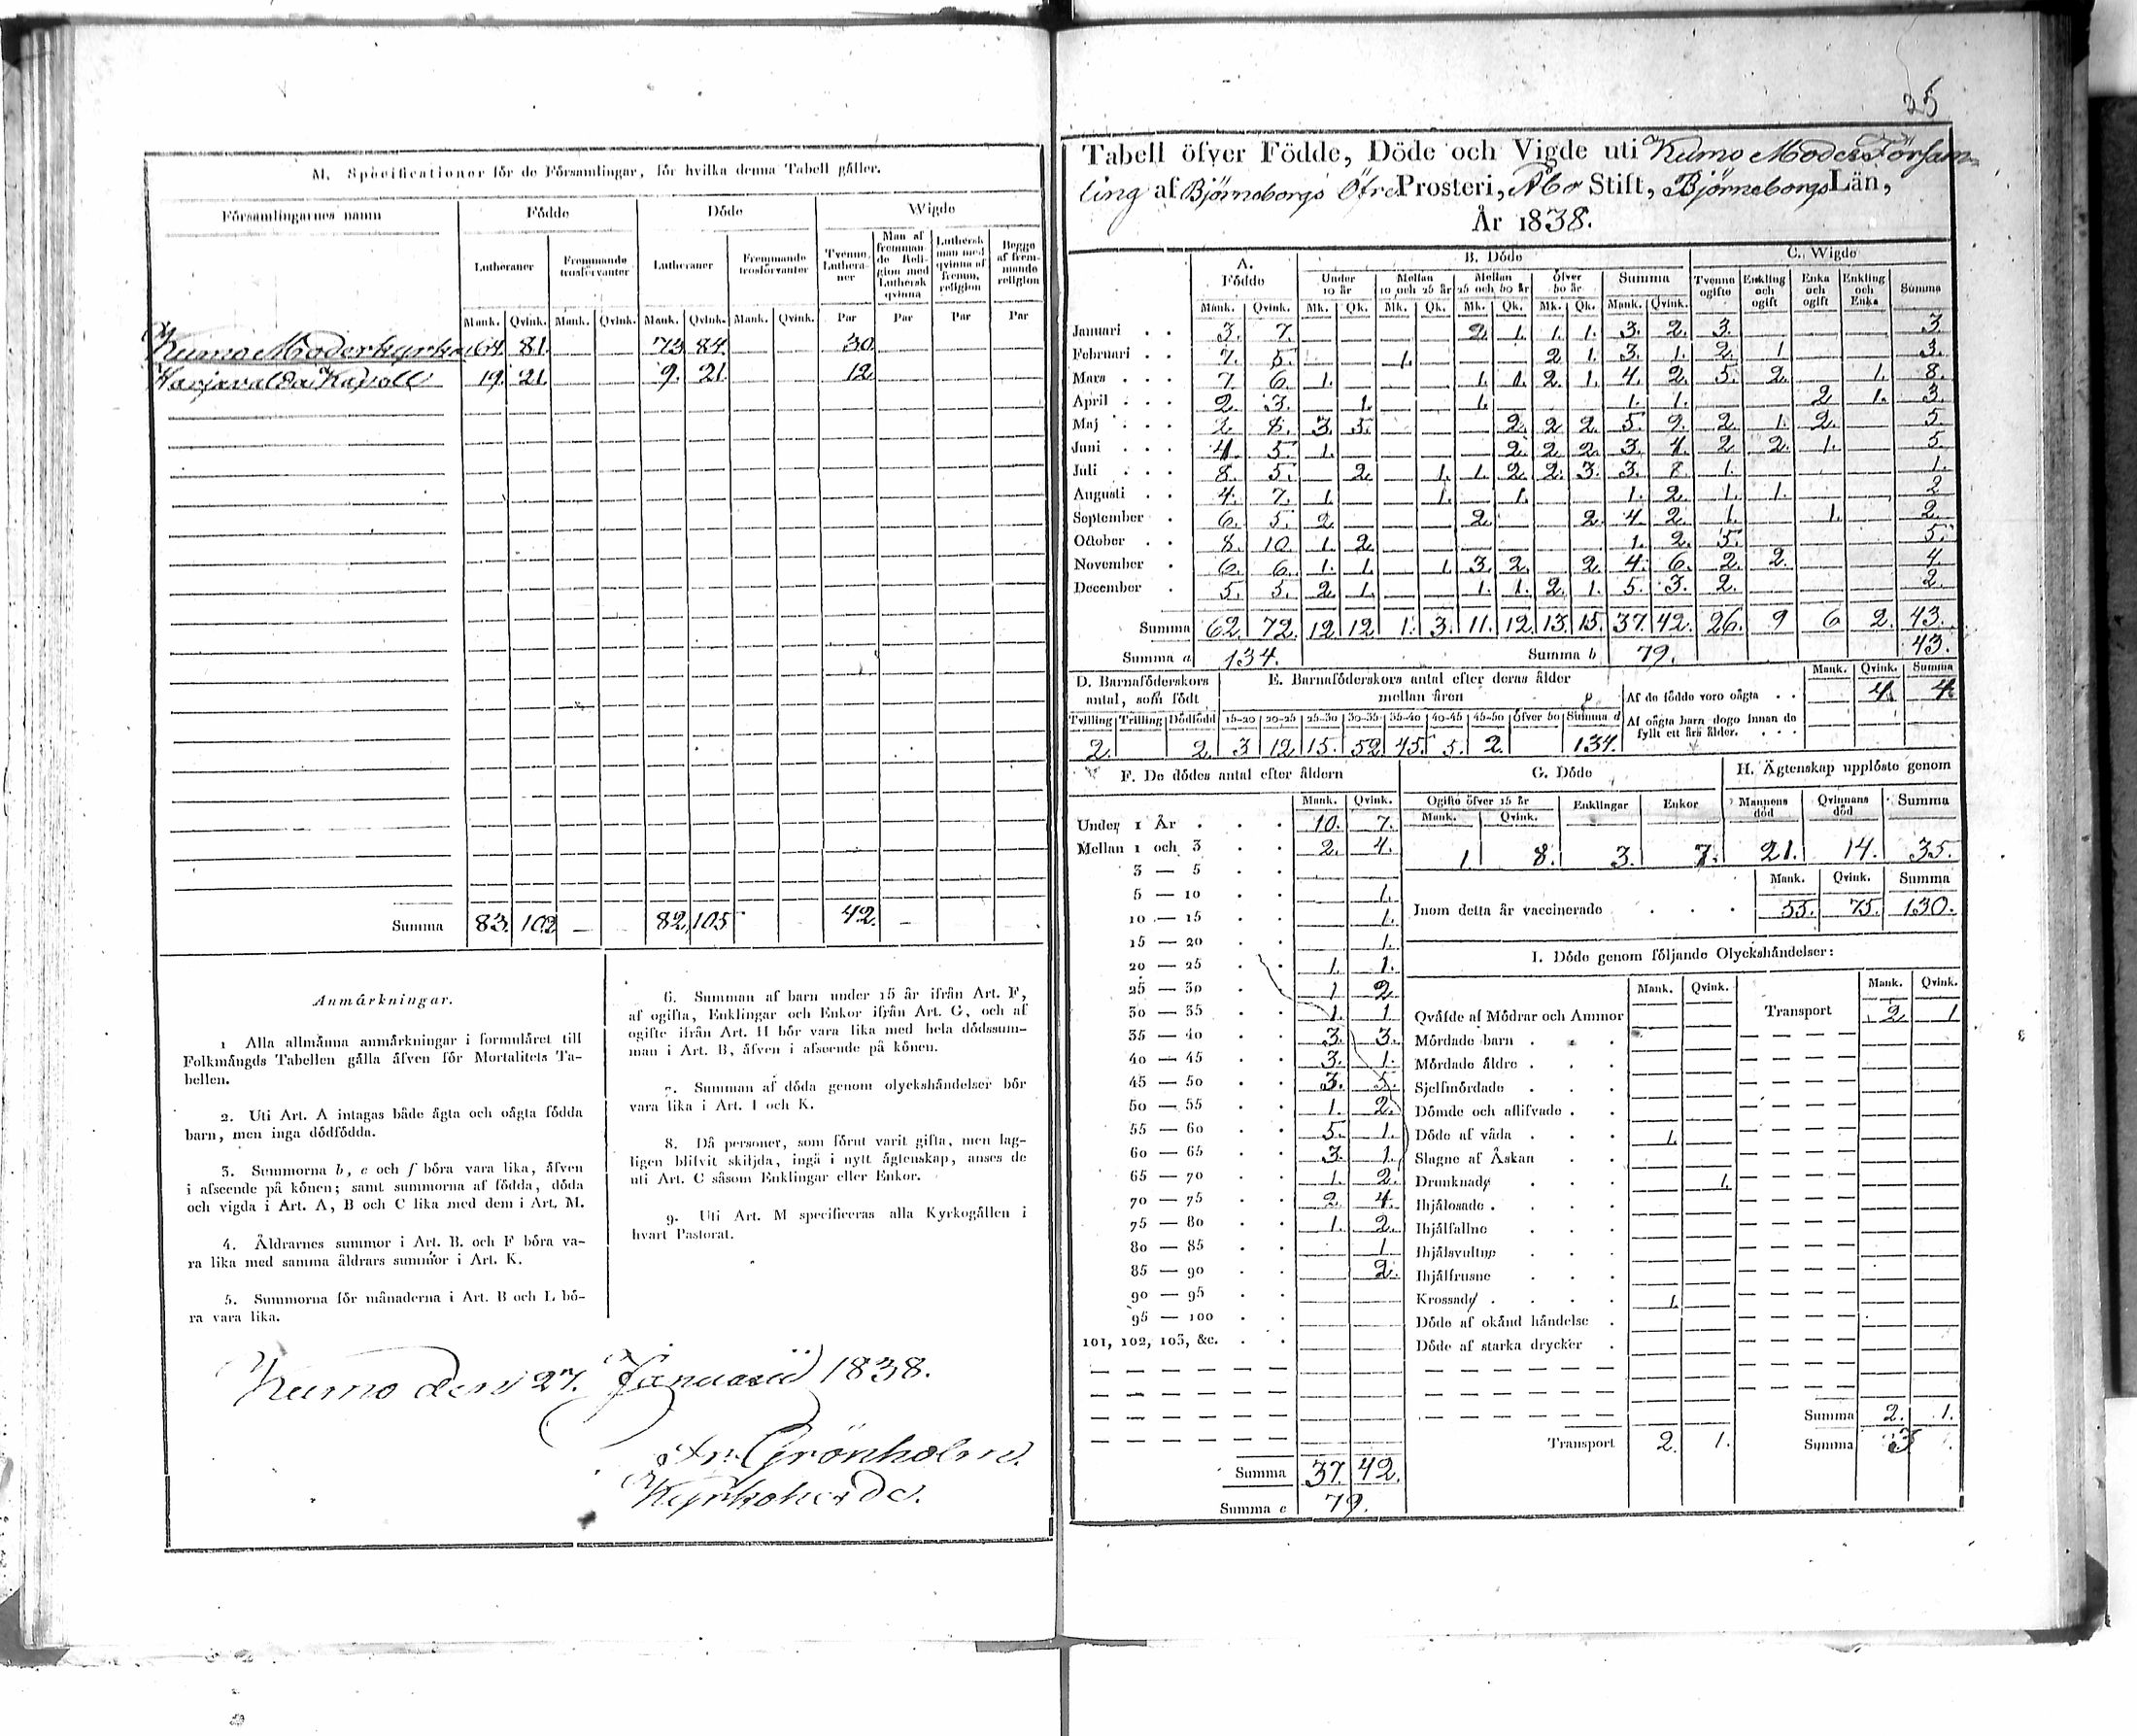 M. Specificationer för de Församlingar, för hvilka denna Tabell gäller.
Församlingarnes namn | Födde | Döde | Wigde
Lutheraner | Fremmande trosförvanter | Lutheraner | Fremmande trosförvanter | Tvenne Lutheraner | Man af fremmande Religion med Luthersk qvinna | Luthersk man med qvinna af fremm. religion | Begge af fremmande religion
Mank. | Qvink. | Mank. | Qvink. | Mank. | Qvink. | Mank. | Qvink. | Par | Par | Par | Par
Kumo Moderkyrka 64. 81. — — 73 84. — — 30.
Harjavalda Kapell 19. 21. 9. 21. 12.
Summa 83. 102 — 82. 105 42. —
Anmärkningar.
1 Alla allmänna anmärkningar i formuläret till
Folkmängds Tabellen gälla äfven för Mortalitets Ta-
bellen.
2. Uti Art. A intagas både ägta och oägta födda
barn, men inga dödfödda.
3. Summorna b, c och f böra vara lika, äfven
i afseende på könen; samt summorna af födda, döda
och vigda i Art. A, B och C lika med dem i Art. M.
4. Åldrarnes summor i Art. B. och F böra va-
ra lika med samma åldrars summor i Art. K.
5. Summorna för månaderna i Art. B och L bö-
ra vara lika.
6. Summan af barn under 15 år ifrån Art. F,
af ogifta, Enklingar och Enkor ifrån Art. G, och af
gifte ifrån Art. H bör vara lika med hela dödssum-
man i Art. B, äfven i afseende på könen.
7. Summan af döda genom olyckshändelser bör
vara lika i Art. I och K.
8. Då personer, som förut varit gifta, men lag-
ligen blifvit skiljda, ingå i nytt ägtenskap, anses de
uti Art. C såsom Enklingar eller Enkor.
9. Uti Art. M specificeras alla Kyrkogällen i
hvart Pastorat.
Kumo den 27. Januarii 1838.
Grönholm.
Kyrkoherde.
25
Tabell öfver Födde, Döde och Vigde uti Kumo Moder Församling
af Björneborgs Öfre Prosteri, Åbo Stift, Björneborgs Län,
År 1838.
A. Födde | B. Döde | C. Wigde
Under 10 år | Mellan 10 och 25 år | Mellan 25 och 50 år | Öfver 50 år | Summa | Tvenne ogifte | Enkling och ogift | Enka och ogift | Enkling och Enka | Summa
Mank. | Qvink. | Mk. | Qk. | Mk. | Qk. | Mk. | Qk. | Mk. | Qk. | Mank. | Qvink.
Januari . . 3. 7. — — — — 2. 1. 1. 1. 3. 2. 3. — — — 3
Februari . . 7. 5. — — 1. — — — 2 1. 3. 1. 2. 1 — — 3.
Mars . . . 7 6. 1. — — — 1. 1. 2. 1. 4. 2. 5. 2. — 1. 8.
April . . . 2. 3. — 1. — — 1. — — — 1. 1. — — 2 1. 3.
Maj . . . 2. 8. 3. 5. — — — 2. 2 2. 5. 9. 2. 1. 2. — 5.
Juni . . . 4. 5. 1. — — — — 2. 2 2. 3. 4. 2 2. 1. — 5.
Juli . . . 8. 5. — 2. — 1. 1. 2 2. 3. 3. 8. 1. — — — 1.
Augusti . . 4. 7. 1. — — 1. — 1. — — 1. 2. 1. 1. — — 2
September . 6. 5. 2. — — — 2. — — 2. 4. 2. 1. — 1. — 2.
October . . 8. 10. 1. 2 — — — — — — 1. 2. 5. — — — 5.
November . 6. 6. 1. 1. — 1. 3. 2. — 2. 4. 6. 2. 2. — — 4.
December . 5. 5. 2. 1. — — 1. 1. 2. 1. 5. 3. 2. — — — 2.
Summa 62 72. 12 12 1. 3. 11. 12. 13. 15. 37. 42. 26. 9 6 2. 43.
Summa a 134. Summa b 79. 43.
D. Barnaföderskors antal, som födt | E. Barnaföderskors antal efter deras ålder mellan åren | Mank. | Qvink. | Summa
Af de födde voro oägta . . 4. 4.
Tvilling | Trilling | Dödfödd | 15-20 | 20-25 | 25-30 | 30-35 | 35-40 | 40-45 | 45-50 | Öfver 50 | Summa d
Af oägta barn dogo innan de fyllt ett års ålder. . . .
2. 2. 3 12 15. 52. 45. 5. 2. 134.
F. De dödes antal efter åldern
Mank. | Qvink.
Under 1 År . . . 10. 7.
Mellan 1 och 3 . . 2. 4.
3 — 5 . .
5 — 10 . . 1.
10 — 15 . . 1.
15 — 20 . . 1.
20 — 25 . . 1. 1.
25 — 30 . . 1 2
30 — 35 . . 1. 1
35 — 40 . . 3. 3.
40 — 45 . . 3. 1.
45 — 50 . . 3. 5.
50 — 55 . . 1. 2.
55 — 60 . . 5. 1.
60 — 65 . . 3. 1.
65 — 70 . . 1. 2.
70 — 75 . . 2. 4.
75 — 80 . . 1. 2.
80 — 85 . . 1
85 — 90 . . 2.
90 — 95 . .
95 — 100 . .
101, 102, 103, &c. . .
Summa 37. 42.
Summa c 79.
G. Döde | H. Ägtenskap upplöste genom
Ogifte öfver 15 år | Enklingar | Enkor | Mannens död | Qvinnans död | Summa
Mank. | Qvink.
1. 8. 3. 7. 21. 14. 35.
Mank. | Qvink. | Summa
Inom detta år vaccinerade . . . 55. 75. 130.
I. Döde genom följande Olyckshändelser:
Mank. | Qvink. | Mank. | Qvink.
Qväfde af Mödrar och Ammor Transport 2 1
Mördade barn . . .
Mördade äldre . . .
Sjelfmördade . . .
Dömde och aflifvade . .
Döde af våda . . . 1.
Slagne af Åskan . .
Drunknade . . . 1.
Ihjälosade . . .
Ihjälfallne . . .
Ihjälsvultne . . .
Ihjälfrusne . . .
Krossade . . . . 1.
Döde af okänd händelse .
Döde af starka drycker .
Summa 2. 1.
Transport 2. 1. Summa 3